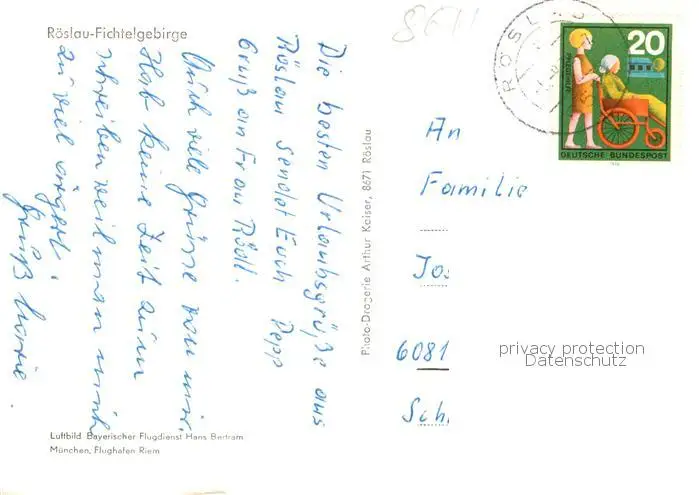 Röslau-Fichtelgebirge
Die besten Urlaubsgrüße aus
Röslau sendet Euch Depp
Gruß an Frau Rödl.
Auch viele Grüsse von mir.
Hab keine Zeit zum
schreiben weil man mich
zu viel ärgert.
Gruß
Luftbild Bayerischer Flugdienst Hans Bertram
München, Flughafen Riem
Photo-Drogerie Arthur Kaiser, 8671 Röslau
8671
RÖSLAU
20
DEUTSCHE BUNDESPOST
An
Familie
Jos
6081
Sch
privacy protection
Datenschutz